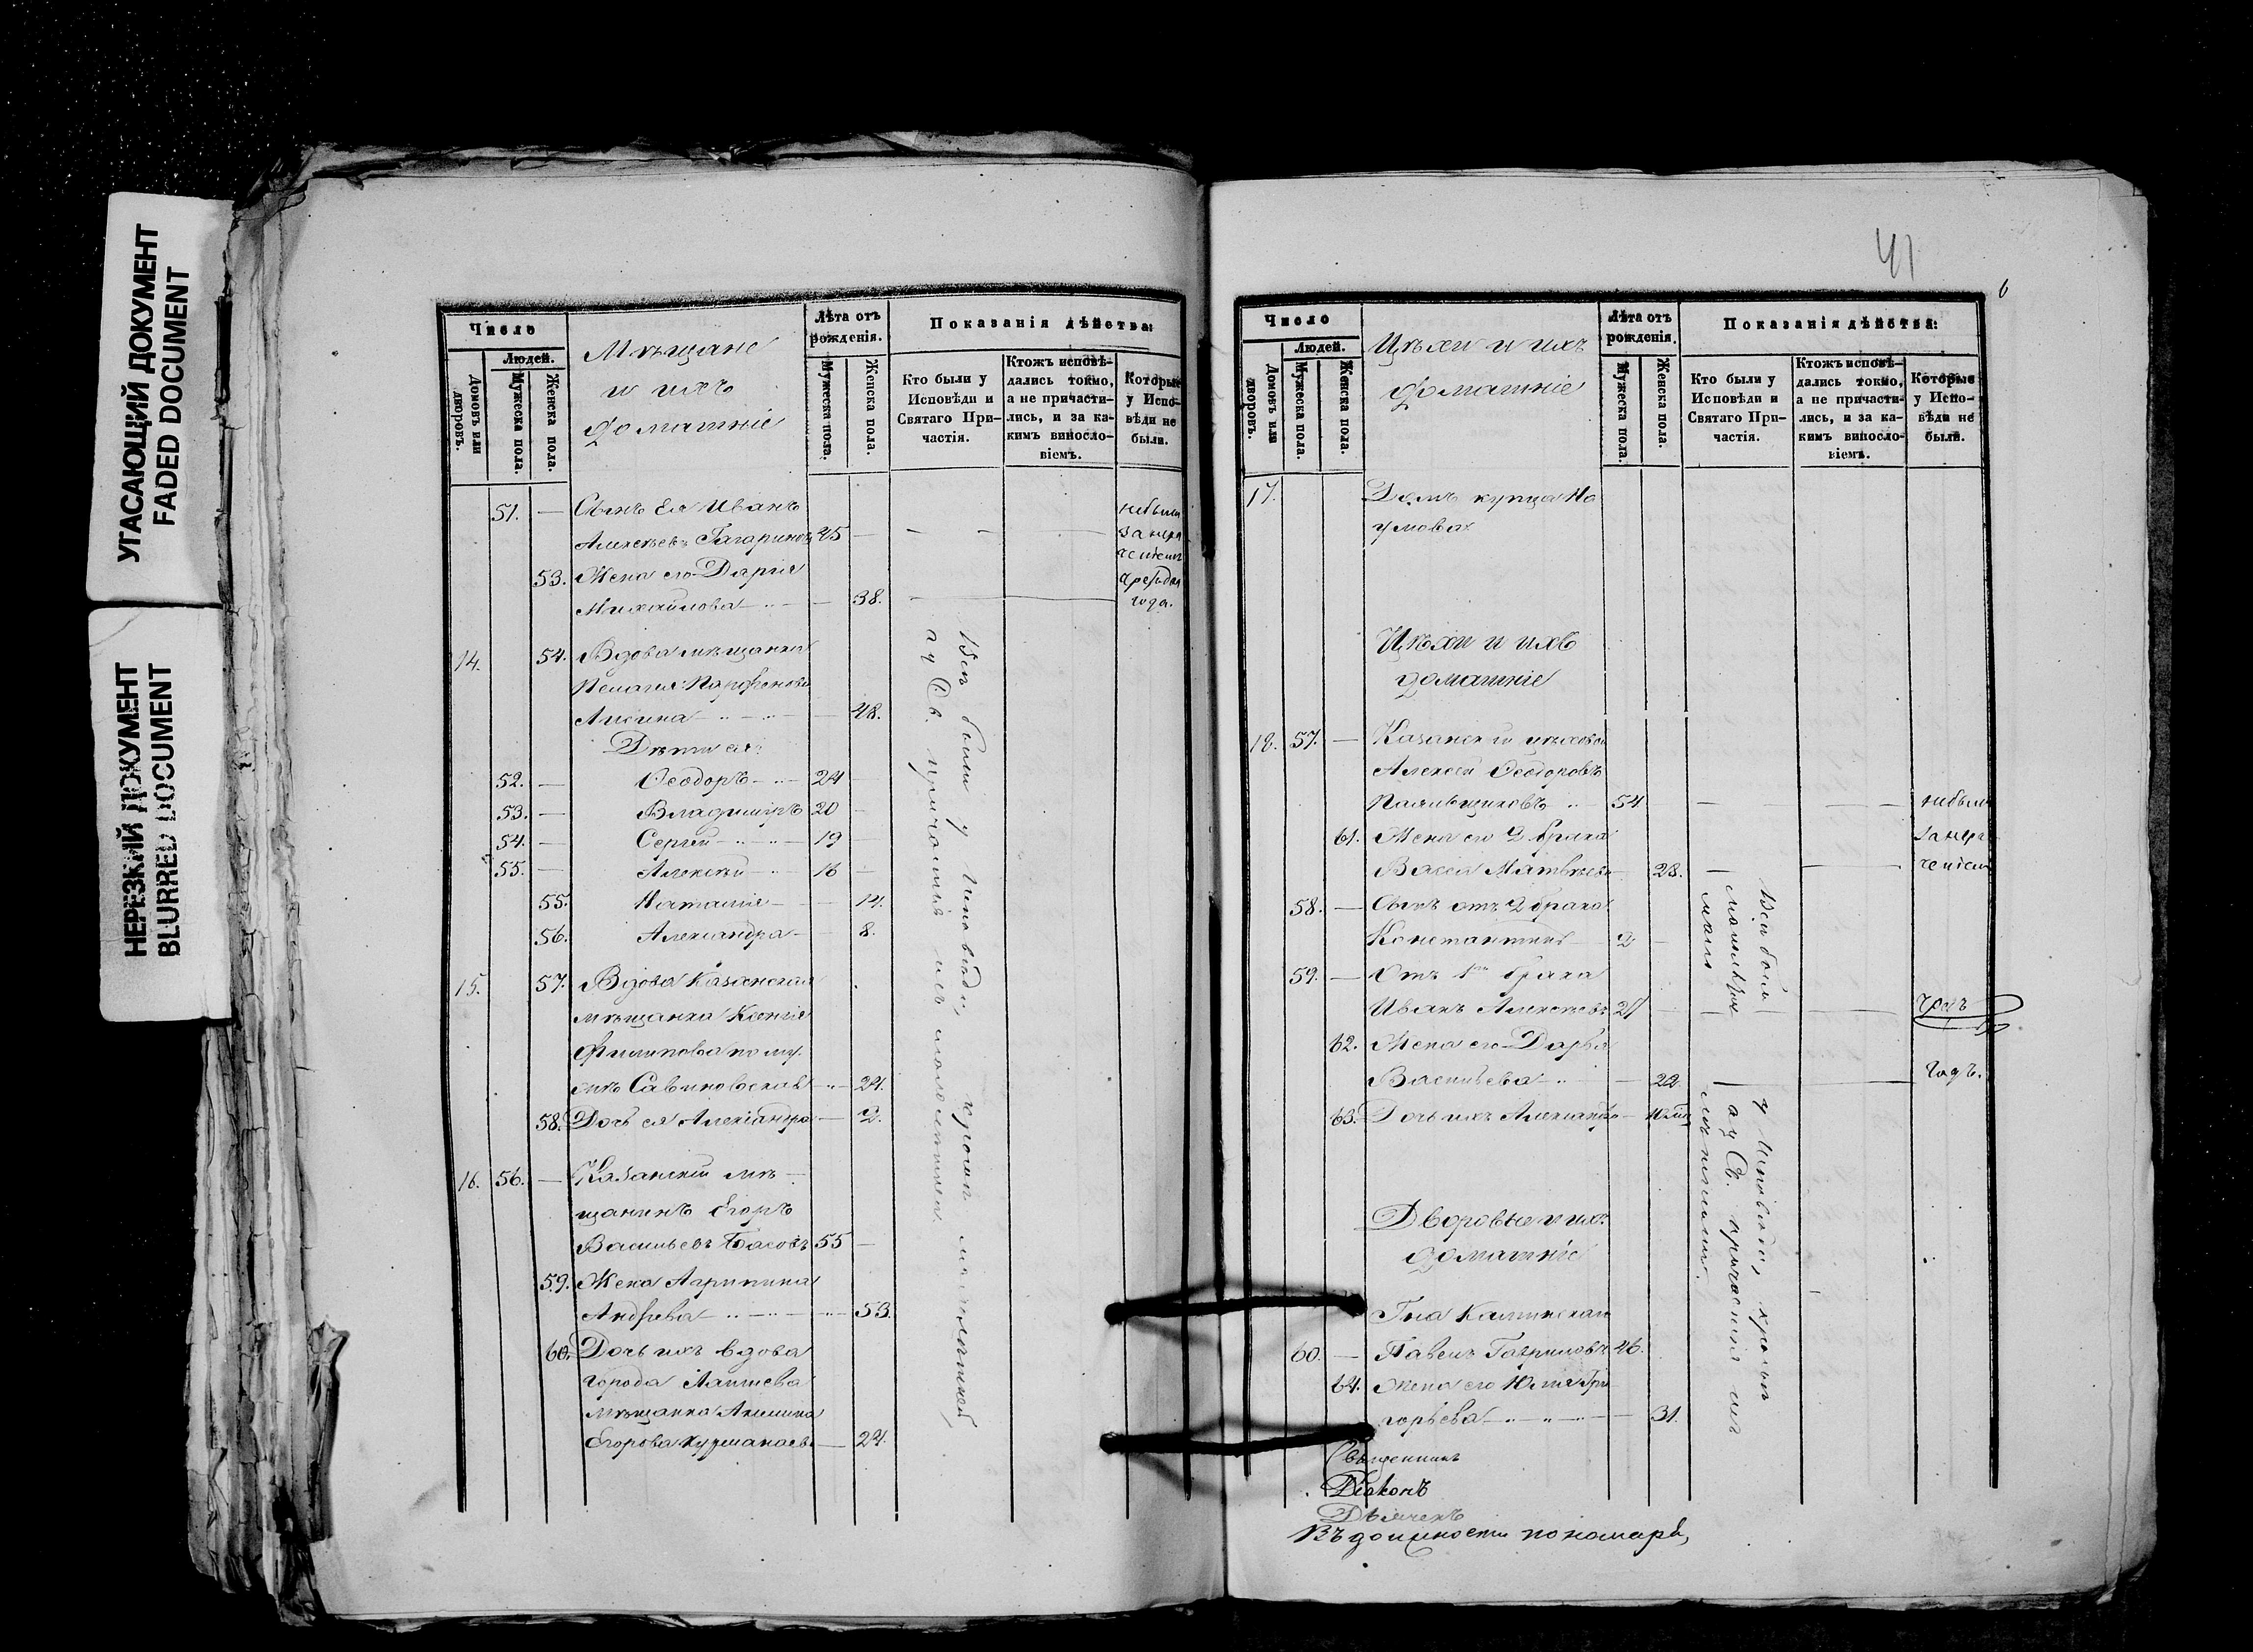 УГАСАЮЩИЙ ДОКУМЕНТ
FADED DOCUMENT
НЕРЕЗКИЙ ДОКУМЕНТ
BLURRED DOCUMENT
Число
Людей.
Домовъ или дворовъ.
Мужеска пола.
Женска пола.
Мѣщане
и ихъ
домашніе
Лѣта отъ рожденія.
Мужеска пола.
Женска пола.
Показанія дѣйства:
Кто были у Исповѣди и Святаго Причастія.
Ктожъ исповѣдались токмо, а не причастились, и за какимъ винословіемъ.
Которые у Исповѣди не были.
51. — Сынъ ея Иванъ
Алексѣевъ Гагаринъ 45 —
53. Жена его Дарія
Михайлова — 38.
небыли
за нера
ченіем
года.
14. 54. Вдова мѣщанка
Пелагія Парфенова
48.
Дѣти ея:
52. — Ѳеодоръ 24 —
53. — Владиміръ 20 —
54. — Сергѣй 19 —
55. — Алексѣй 16 —
55. Наталія — 14.
56. Александра — 8.
15. 57. Вдова Казанская
мѣщанка Ксенія
Филипова по му
жѣ 24.
58. Дочь ея Александра — 2.
16. 56. — Казанскій мѣ
щанинъ Егоръ
Васильевъ Басовъ 55 —
59. Жена Агрипина
Андреева — 53.
60. Дочь ихъ вдова
города Лаишева
мѣщанка Акилина
Егорова — 24.
Всѣ были у Исповѣди,
а у Св. причастія
кромѣ
41
6
Число
Людей.
Домовъ или дворовъ.
Мужеска пола.
Женска пола.
Цѣхи и ихъ
домашніе
Лѣта отъ рожденія.
Мужеска пола.
Женска пола.
Показанія дѣйства:
Кто были у Исповѣди и Святаго Причастія.
Ктожъ исповѣдались токмо, а не причастились, и за какимъ винословіемъ.
Которые у Исповѣди не были.
17. Домъ купца На
умова
Цѣхи и ихъ
домашніе
18. 57. — Казанскій цѣховой
Алексѣй Ѳеодоровъ
Паяльщиковъ 54
61. Жена его 2 брака
Васса Матвѣева 28.
58. — Сынъ отъ 2 брака
Константинъ 2
59. — Отъ 1го брака
Иванъ Алексѣевъ 21
62. Жена его Дарья
Васильева — 22
63. Дочь ихъ Александра —
небыли
за нера
ченіем
годъ.
Всѣ были
у Исповѣди, кромѣ
а у Св. причастія
Дворовые и ихъ
домашніе
60. — Павелъ Гавриловъ 46.
64. Жена его Юлія Гри
горьева — 31.
Священникъ
Діаконъ
Дьячекъ
Въ должности пономаря,